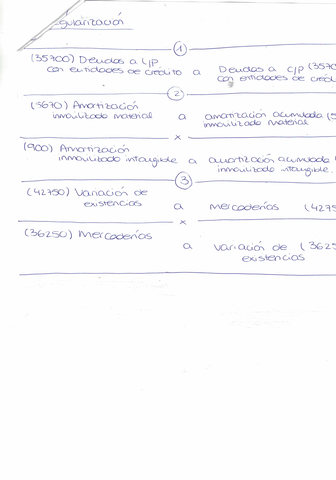 gularización
1
(35700) Deudas a L/P a Deudas a c/p (3570
con entidades de crédito con entidades de créd
2
(5670) Amortización a amortización acumulada (5
inmovilizado material inmovilizado material
x
(900) Amortización
inmovilizado intangible a amortización acumulada
inmovilizado intangible.
3
(42750) Variación de
existencias a mercaderías (4275
x
(36250) Mercaderías
a variación de (3625
existencias